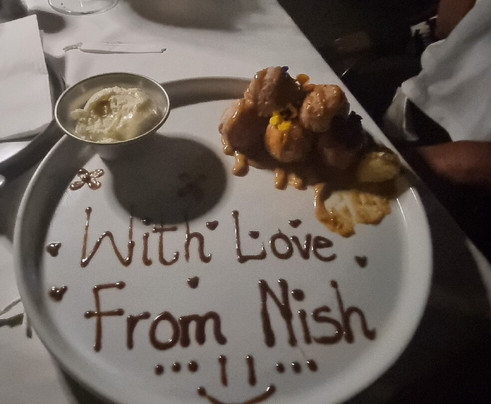 With Love
From Nish